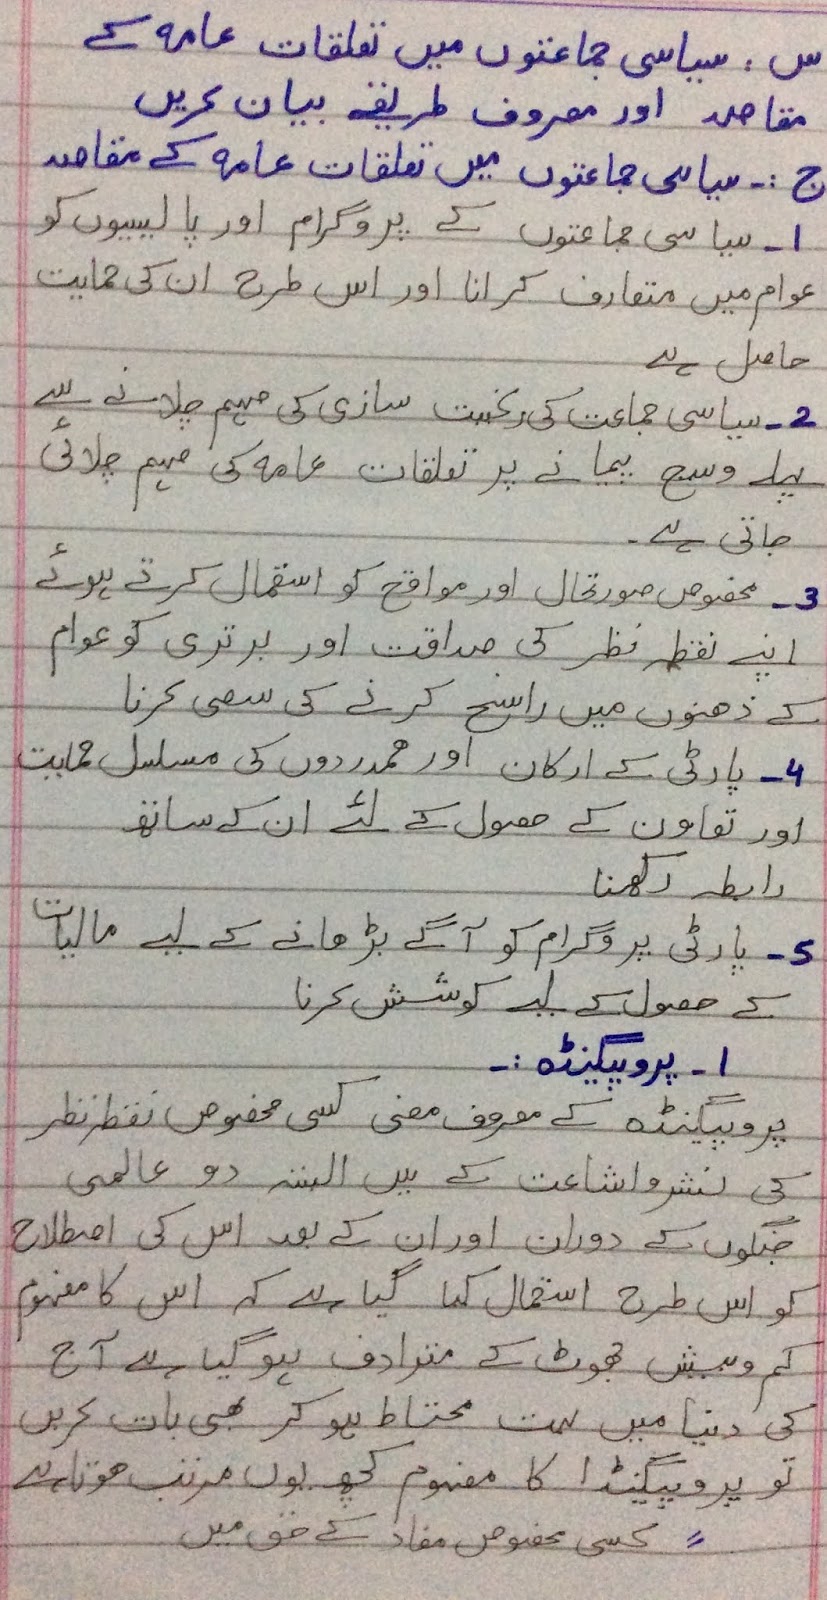 س: سیاسی جماعتوں میں تعلقات عامہ کے
مقاصد اور معروف طریقے بیان کریں
ج :۔ سیاسی جماعتوں میں تعلقات عامہ کے مقاصد
1۔ سیاسی جماعتوں کے پروگرام اور پالیسیوں کو
عوام میں متعارف کرانا اور اس طرح ان کی حمایت
حاصل ہے
2۔ سیاسی جماعت کی رکنیت سازی کی مہم چلانے سے
پہلے وسیع پیمانے پر تعلقات عامہ کی مہم چلائی
جاتی ہے۔
3۔ مخصوص صورتحال اور مواقع کو استعمال کرتے ہوئے
اپنے نقطہ نظر کی صداقت اور برتری کو عوام
کے ذھنوں میں راسخ کرنے کی سعی کرنا
4۔ پارٹی کے ارکان اور ھمدردوں کی مسلسل حمایت
اور تعاون کے حصول کے لئے ان کے ساتھ
رابطہ رکھنا
5۔ پارٹی پروگرام کو آگے بڑھانے کے لیے مالیات
کے حصول کے لیے کوشش کرنا
1۔ پروپیگینڈہ :۔
پروپیگینڈہ کے معروف معنی کسی مخصوص نقطہ نظر
کی نشر و اشاعت کے ہیں البتہ دو عالمی
جنگوں کے دوران اور ان کے بعد اس کی اصطلاح
کو اس طرح استعمال کیا گیا ہے کہ اس کا مفہوم
کم و بیش جھوٹ کے مترادف ہو گیا ہے آج
کی دنیا میں بہت محتاط ہو کر بھی بات کریں
تو پروپیگینڈا کا مفہوم کچھ یوں مرتب ھوتا ہے
" کسی مخصوص مفاد کے حق میں